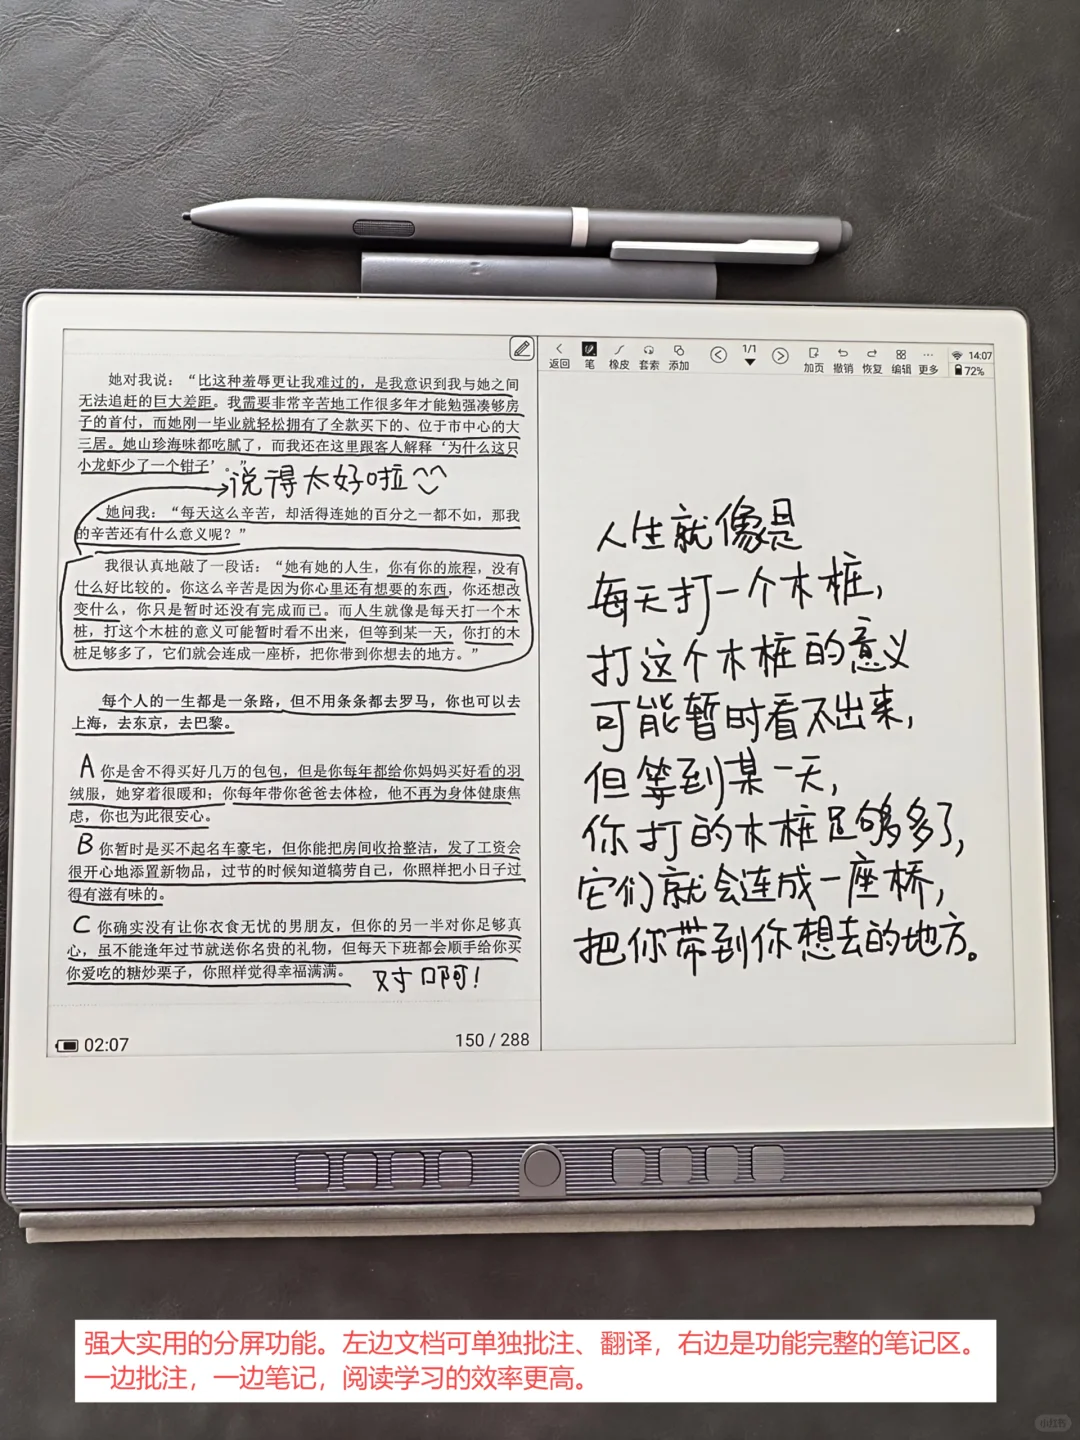 她对我说：“比这种羞辱更让我难过的，是我意识到我与她之间
无法追赶的巨大差距。我需要非常辛苦地工作很多年才能勉强凑够房
子的首付，而她刚一毕业就轻松拥有了全款买下的、位于市中心的大
三居。她山珍海味都吃腻了，而我还在这里跟客人解释‘为什么这只
小龙虾少了一个钳子’。”
说得太好啦
她问我：“每天这么辛苦，却活得连她的百分之一都不如，那我
的辛苦还有什么意义呢？”
我很认真地敲了一段话：“她有她的人生，你有你的旅程，没有
什么好比较的。你这么辛苦是因为你心里还有想要的东西，你还想改
变什么，你只是暂时还没有完成而已。而人生就像是每天打一个木
桩，打这个木桩的意义可能暂时看不出来，但等到某一天，你打的木
桩足够多了，它们就会连成一座桥，把你带到你想去的地方。”
每个人的一生都是一条路，但不用条条都去罗马，你也可以去
上海，去东京，去巴黎。
A 你是舍不得买好几万的包包，但是你每年都给你妈妈买好看的羽
绒服，她穿着很暖和；你每年带你爸爸去体检，他不再为身体健康焦
虑，你也为此很安心。
B 你暂时是买不起名车豪宅，但你能把房间收拾整洁，发了工资会
很开心地添置新物品，过节的时候知道犒劳自己，你照样把小日子过
得有滋有味的。
C 你确实没有让你衣食无忧的男朋友，但你的另一半对你足够真
心，虽不能逢年过节就送你名贵的礼物，但每天下班都会顺手给你买
你爱吃的糖炒栗子，你照样觉得幸福满满。
对啊！
02:07
150 / 288
返回 笔 橡皮 套索 添加 1/1 加页 撤销 恢复 编辑 更多
14:07
72%
人生就像是
每天打一个木桩，
打这个木桩的意义
可能暂时看不出来，
但等到某一天，
你打的木桩足够多了，
它们就会连成一座桥，
把你带到你想去的地方。
强大实用的分屏功能。左边文档可单独批注、翻译，右边是功能完整的笔记区。
一边批注，一边笔记，阅读学习的效率更高。
小红书